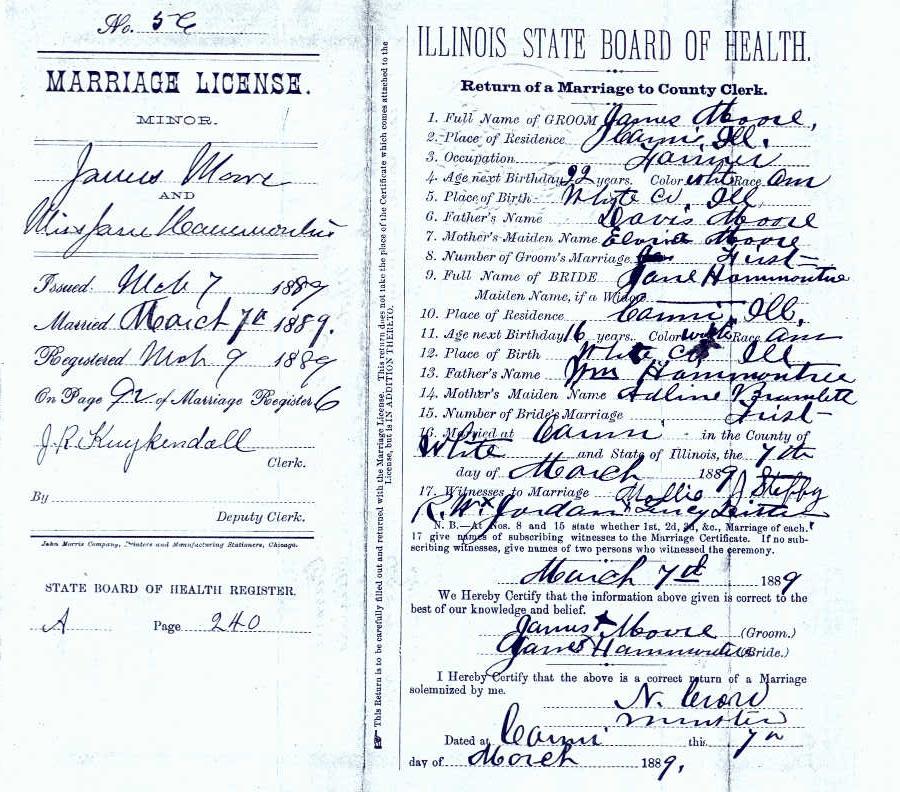 No. 56
MARRIAGE LICENSE.
MINOR.
James Moore
AND
Miss Jane Hammontree
Issued Mch 7 1889
Married March 7th 1889.
Registered Mch 9 1889
On Page 92 of Marriage Register 6
J. R. Kuykendall
Clerk.
By
Deputy Clerk.
John Morris Company, Printers and Manufacturing Stationers, Chicago.
STATE BOARD OF HEALTH REGISTER.
A Page 240
☞ This Return is to be carefully filled out and returned with the Marriage License. This return does not take the place of the Certificate which comes attached to the
License, but is IN ADDITION THERETO.
ILLINOIS STATE BOARD OF HEALTH.
Return of a Marriage to County Clerk.
1. Full Name of GROOM James Moore,
2. Place of Residence Carmi, Ill.
3. Occupation Farmer
4. Age next Birthday 22 years. Color white Race Am
5. Place of Birth White Co, Ill
6. Father's Name Davis Moore
7. Mother's Maiden Name Elvira Moore
8. Number of Groom's Marriage First
9. Full Name of BRIDE Jane Hammontree
Maiden Name, if a Widow
10. Place of Residence Carmi, Ill,
11. Age next Birthday 16 years. Color white Race Am
12. Place of Birth White Co Ill
13. Father's Name Wm Hammontree
14. Mother's Maiden Name Adline Bramlett
15. Number of Bride's Marriage First
16. Married at Carmi in the County of
White and State of Illinois, the 7th
day of March 1889
17. Witnesses to Marriage Mollie J
R. W. Jordan Lucy
N. B.—At Nos. 8 and 15 state whether 1st, 2d, 3d, &c., Marriage of each.
17 give names of subscribing witnesses to the Marriage Certificate. If no sub-
scribing witnesses, give names of two persons who witnessed the ceremony.
March 7th 1889
We Hereby Certify that the information above given is correct to the
best of our knowledge and belief.
James x Moore (Groom.)
Jane x Hammontree (Bride.)
I Hereby Certify that the above is a correct return of a Marriage
solemnized by me.
N. Crow
minister
Dated at Carmi this 7th
day of March 1889,